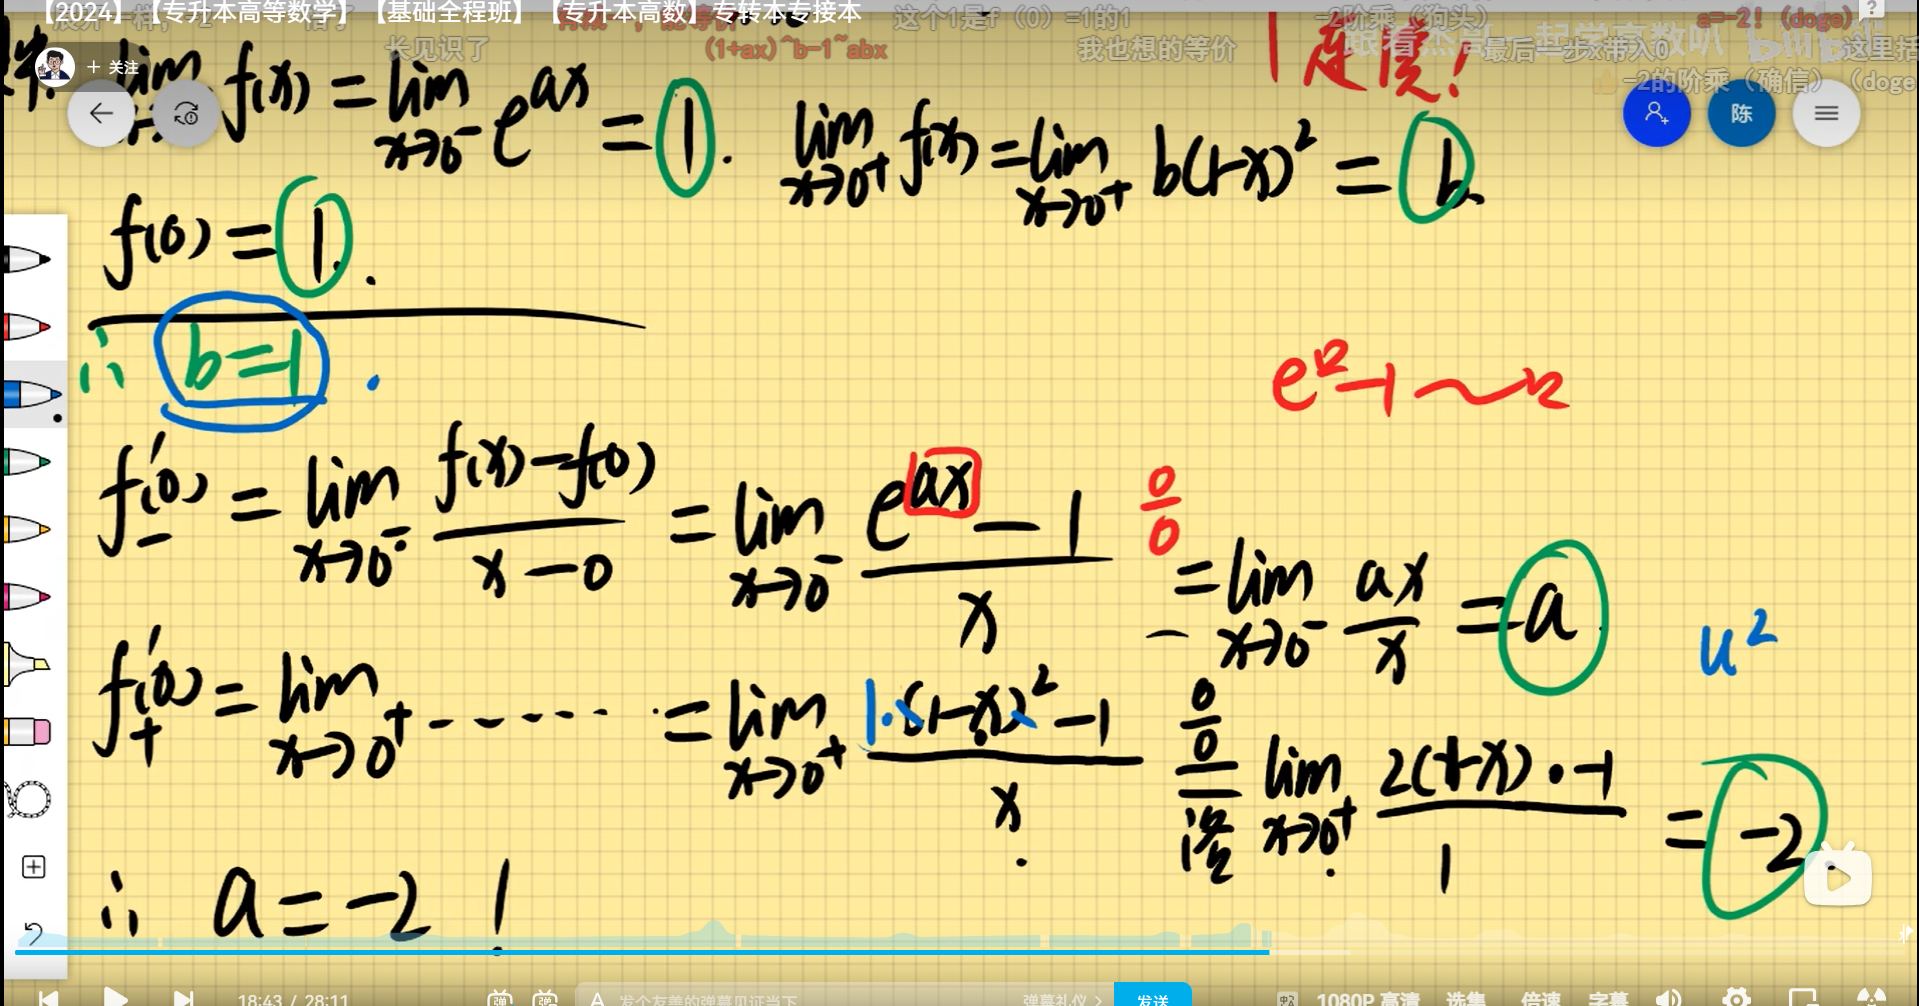 【2024】【专升本高等数学】【基础全程班】【专升本高数】专转本专接本
这个1是f（0）=1的1
-2阶乘（狗头）
a=-2!（doge）
长见识了
(1+ax)^b-1~abx
我也想的等价
最后一步x带入0
这里括
-2的阶乘（确信）（doge
跟着杰哥一起学高数叭
bilibili
+ 关注
陈
连续!
lim f(x) = lim x→0⁻ e^ax = 1.
lim x→0⁺ f(x) = lim x→0⁺ b(1-x)² = b
f(0) = 1.
∴ b=1
e^□-1~□
f'₋(0) = lim x→0⁻ f(x)-f(0) / x-0 = lim x→0⁻ e^ax - 1 / x 0/0 = lim x→0⁻ ax/x = a
u²
f'₊(0) = lim x→0⁺ ------ = lim x→0⁺ 1·(1-x)²-1 / x 0/0 洛 lim x→0⁺ 2(1-x)·-1 / 1 = -2
∴ a=-2!
18:43 / 28:11
弹
发个友善的弹幕见证当下
弹幕礼仪 >
发送
1080P 高清
选集
倍速
字幕